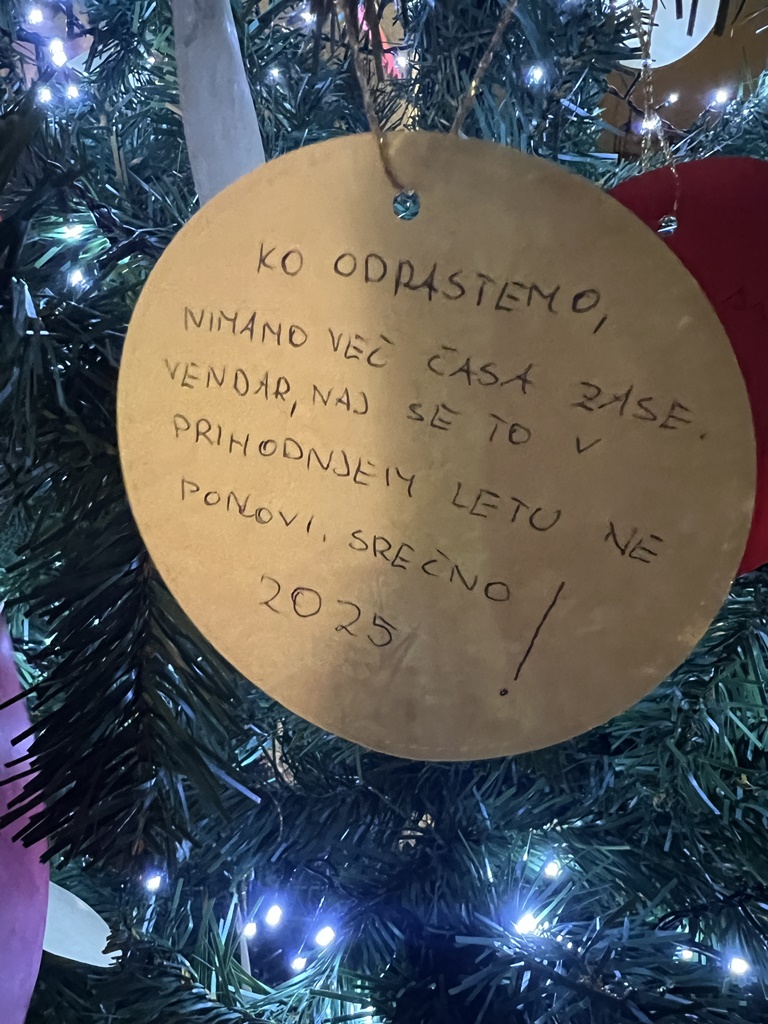 KO ODRASTEMO,
NIMAMO VEČ ČASA ZASE.
VENDAR, NAJ SE TO V
PRIHODNJEM LETU NE
PONOVI. SREČNO
2025!